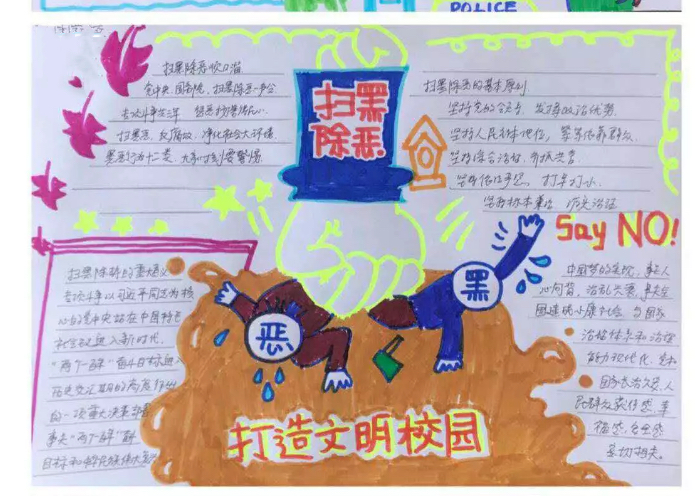 POLICE
扫黑
除恶
扫黑除恶吹口溜
党中央 国务院，扫黑除恶一声令
扫黑恶，反腐败，净化社会大环境
扫黑除恶的基本原则
坚持党的领导、发挥政治优势
坚持人民主体地位，紧紧依靠群众
坚持综合治理、齐抓共管
坚持依法严惩、打早打小
坚持标本兼治、源头治理
Say NO!
黑
恶
扫黑除恶的重大意义
专项斗争以习近平同志为核
心的党中央站在中国特色
社会主义进入新时代、
"两个一百年"奋斗目标进入
历史交汇期的高度作出
的一项重大决策部署
事关"两个一百年"
中国梦的实现，事关人
心向背、治乱兴衰，事关全
面建成小康社会，与国家
治理体系和治理
能力现代化，党和
国家长治久安，人
民群众获得感、幸
福感、安全感
息切相关。
打造文明校园